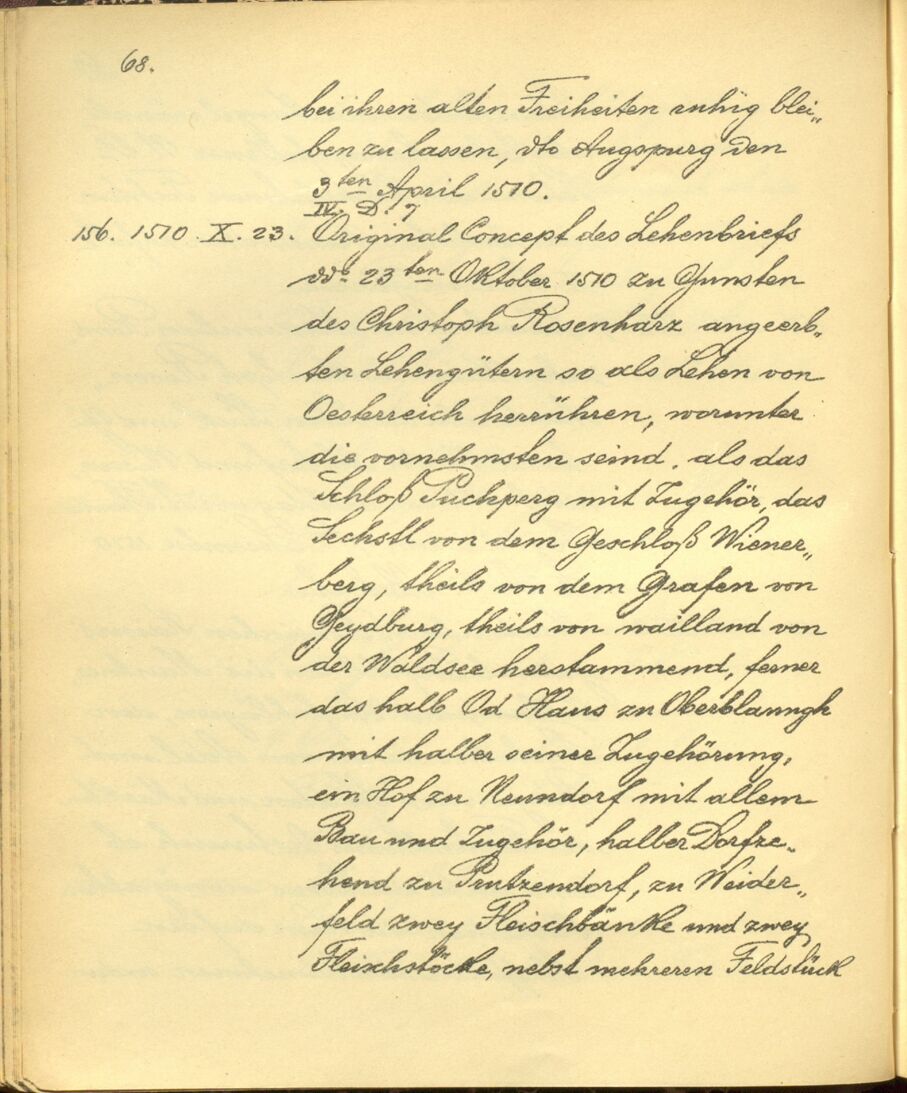 68.
bei ihren alten Freiheiten ruhig blei„
ben zu lassen, dto Augspurg den
3ten April 1570.
IV. D. 7
156. 1570. X. 23. Original Concept des Lehenbriefs
ddo 23ten Oktober 1570 zu Gunsten
des Christoph Rosenharz angeerb„
ten Lehengütern so als Lehen von
Oesterreich herrühren, worunter
die vornehmsten seind, als das
Schloß Puchperg mit Zugehör, das
Sechstl von dem Geschloß Wiener„
berg, theils von dem Grafen von
Geydburg, theils von wailland von
der Waldsee herstammend, ferner
das halb Öd Haus zu Oberblanngk
mit halber seiner Zugehörung,
ein Hof zu Neundorf mit allem
Bau und Zugehör, halber Dorfze„
hend zu Prutzendorf, zu Weider„
feld zwey Fleischbänke und zwey
Fleischstöcke, nebst mehreren Feldstück